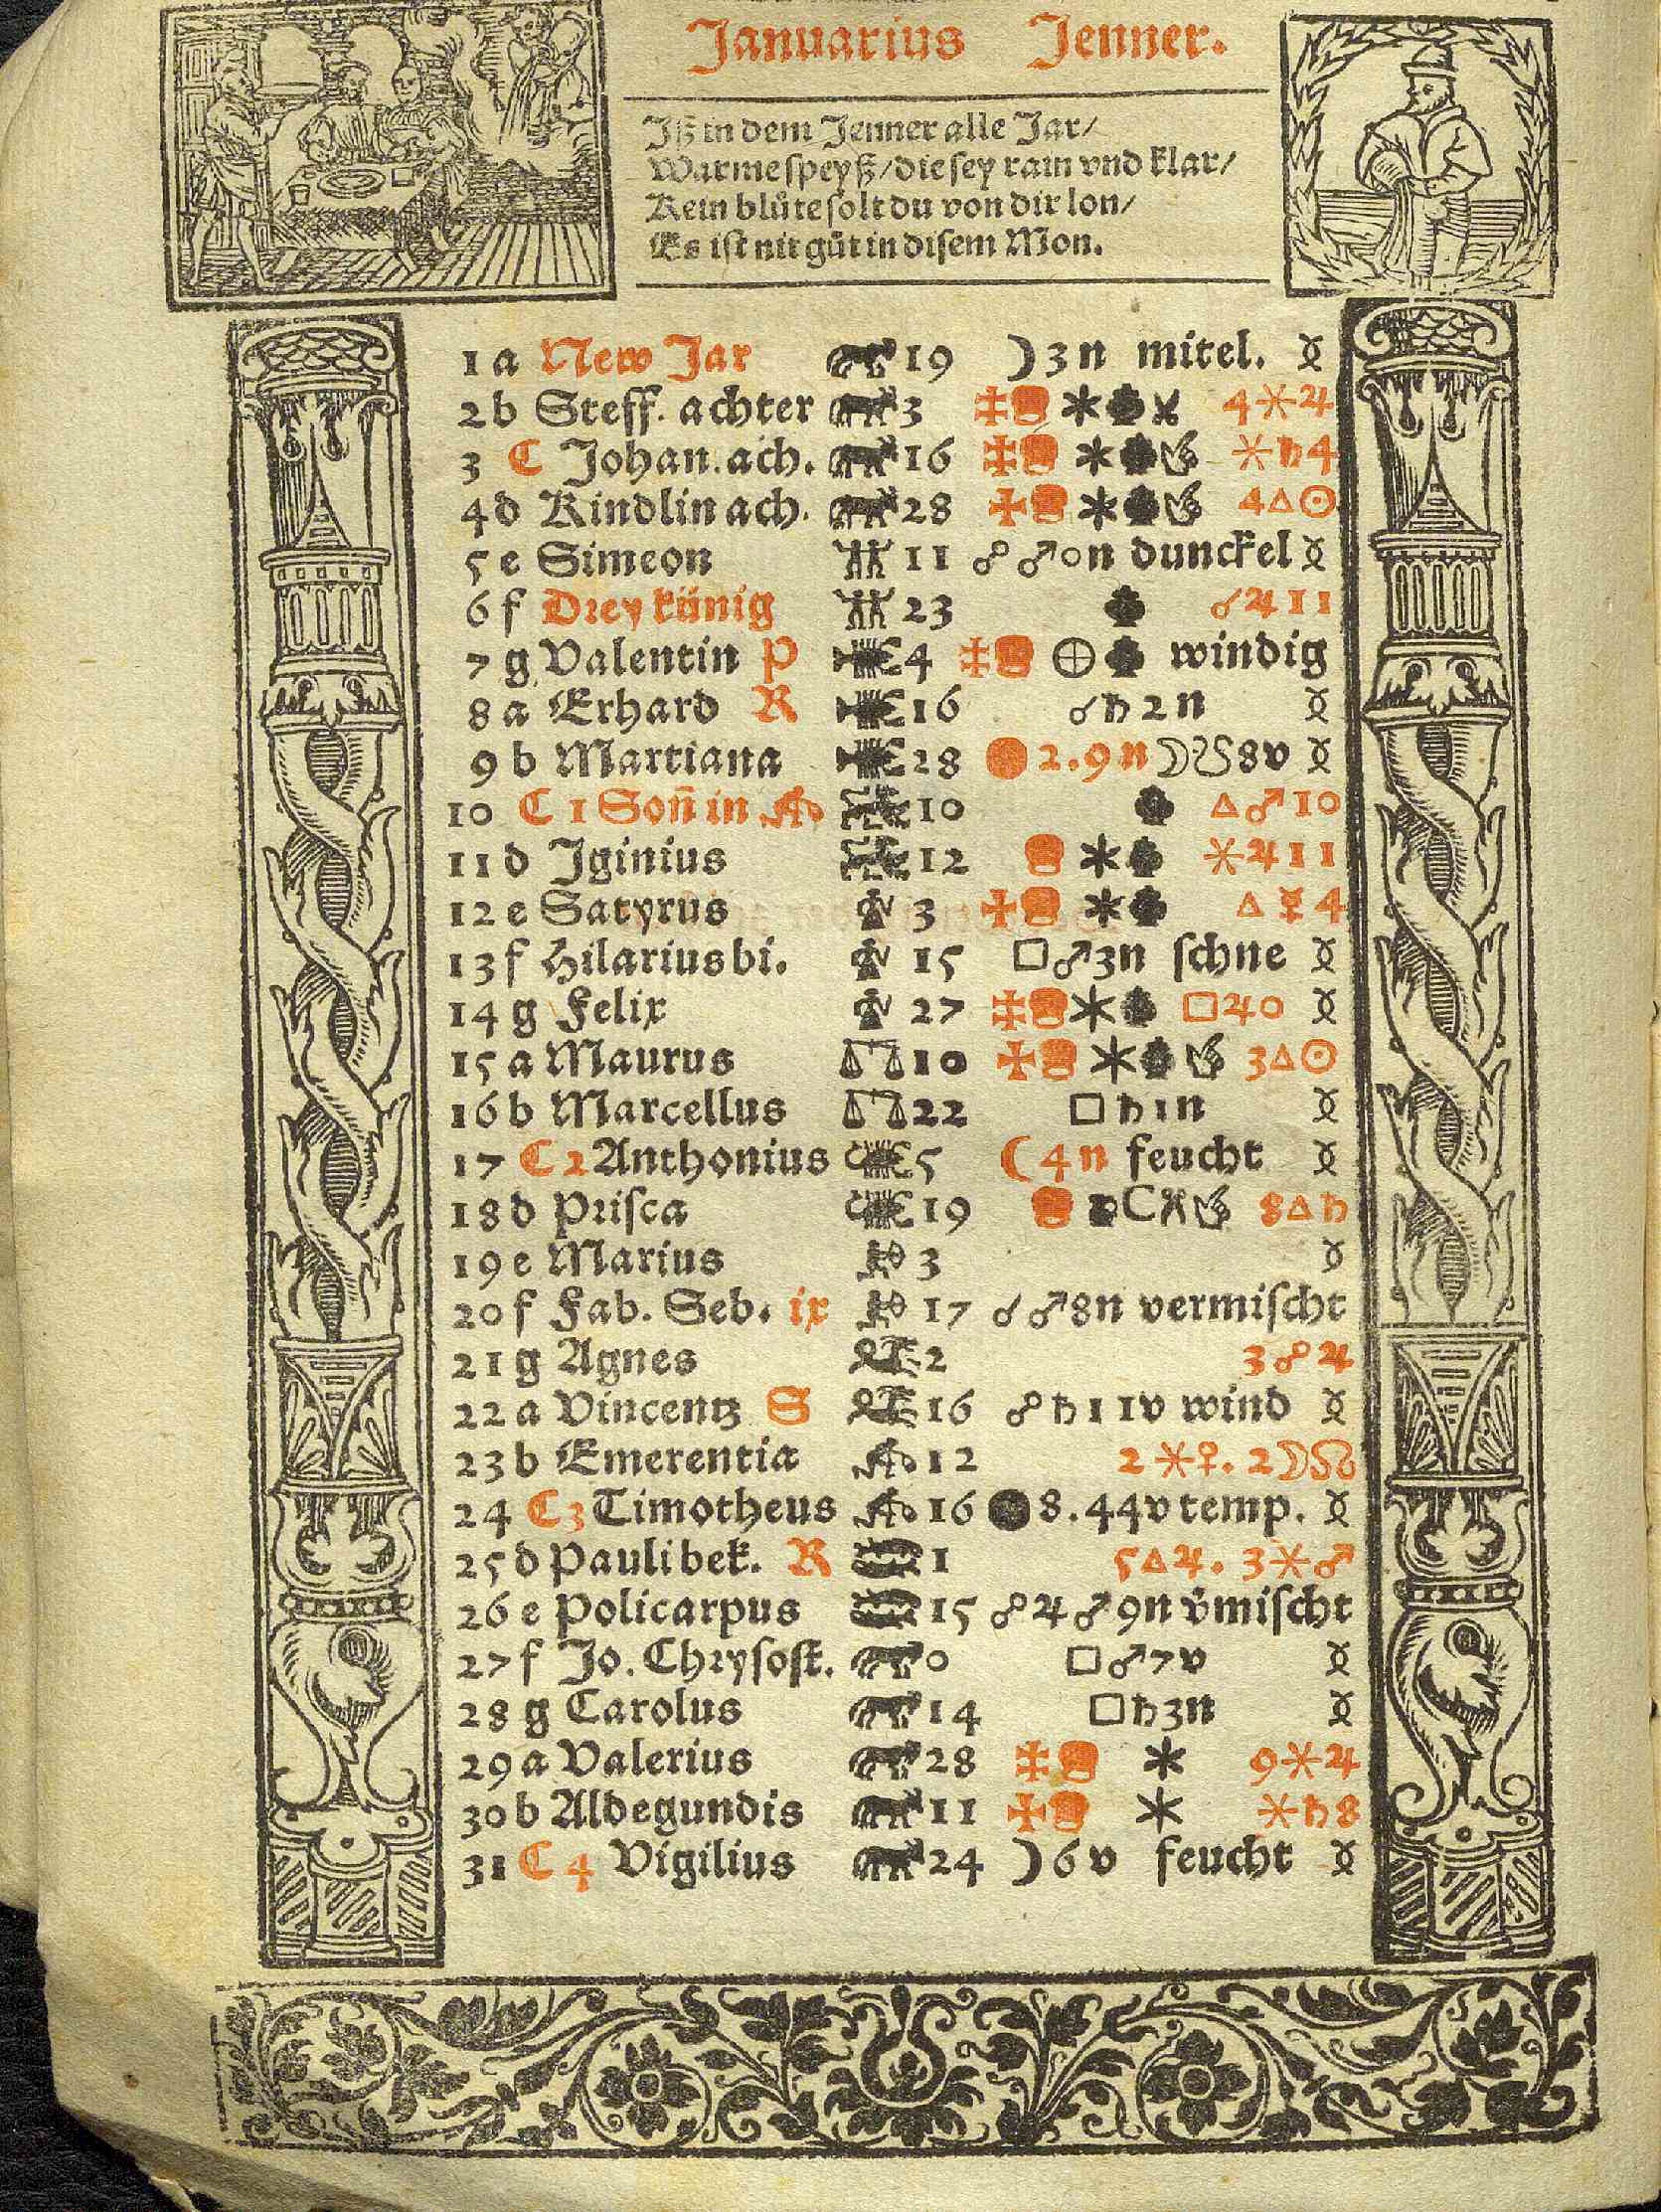 Januarius Jenner.
Iß in dem Jenner alle Jar/
Warme speyß/die sey rain vnd klar/
Kein blůte solt du von dir lon/
Es ist nit gůt in disem Mon.
1 a New Jar 19 ☽ 3 n mitel.
2 b Steff. achter 3 4⚹♃
3 C Johan. ach. 16 ⚹♄4
4 d Kindlin ach. 28 4△☉
5 e Simeon 11 ☍♂0n dunckel
6 f Drey künig 23 ☌♃11
7 g Valentin P 4 windig
8 a Erhard R 16 ☌♄2n
9 b Martiana 28 2.9n☽☋8v
10 C 1 Soñ in 10 △♂10
11 d Iginius 12 ⚹♃11
12 e Satyrus 3 △☿4
13 f Hilarius bi. 15 □♂3n schne
14 g Felix 27 □♃0
15 a Maurus 10 3△☉
16 b Marcellus 22 □♄1n
17 C 2 Anthonius 5 ☾ 4n feucht
18 d Prisca 19 C 8△♄
19 e Marius 3
20 f Fab. Seb. ix 17 ☌♂8n vermischt
21 g Agnes 2 3☍♃
22 a Vincentz S 16 ☍♄11v wind
23 b Emerentia 12 2⚹♀. 2☽☊
24 C 3 Timotheus 16 ●8.44v temp.
25 d Pauli bek. R 1 5△♃. 3⚹♂
26 e Policarpus 15 ☍♃♂9n v̈mischt
27 f Jo. Chrysost. 0 □♂7v
28 g Carolus 14 □♄3n
29 a Valerius 28 9⚹♃
30 b Aldegundis 11 ⚹♄8
31 C 4 Vigilius 24 ☽6v feucht